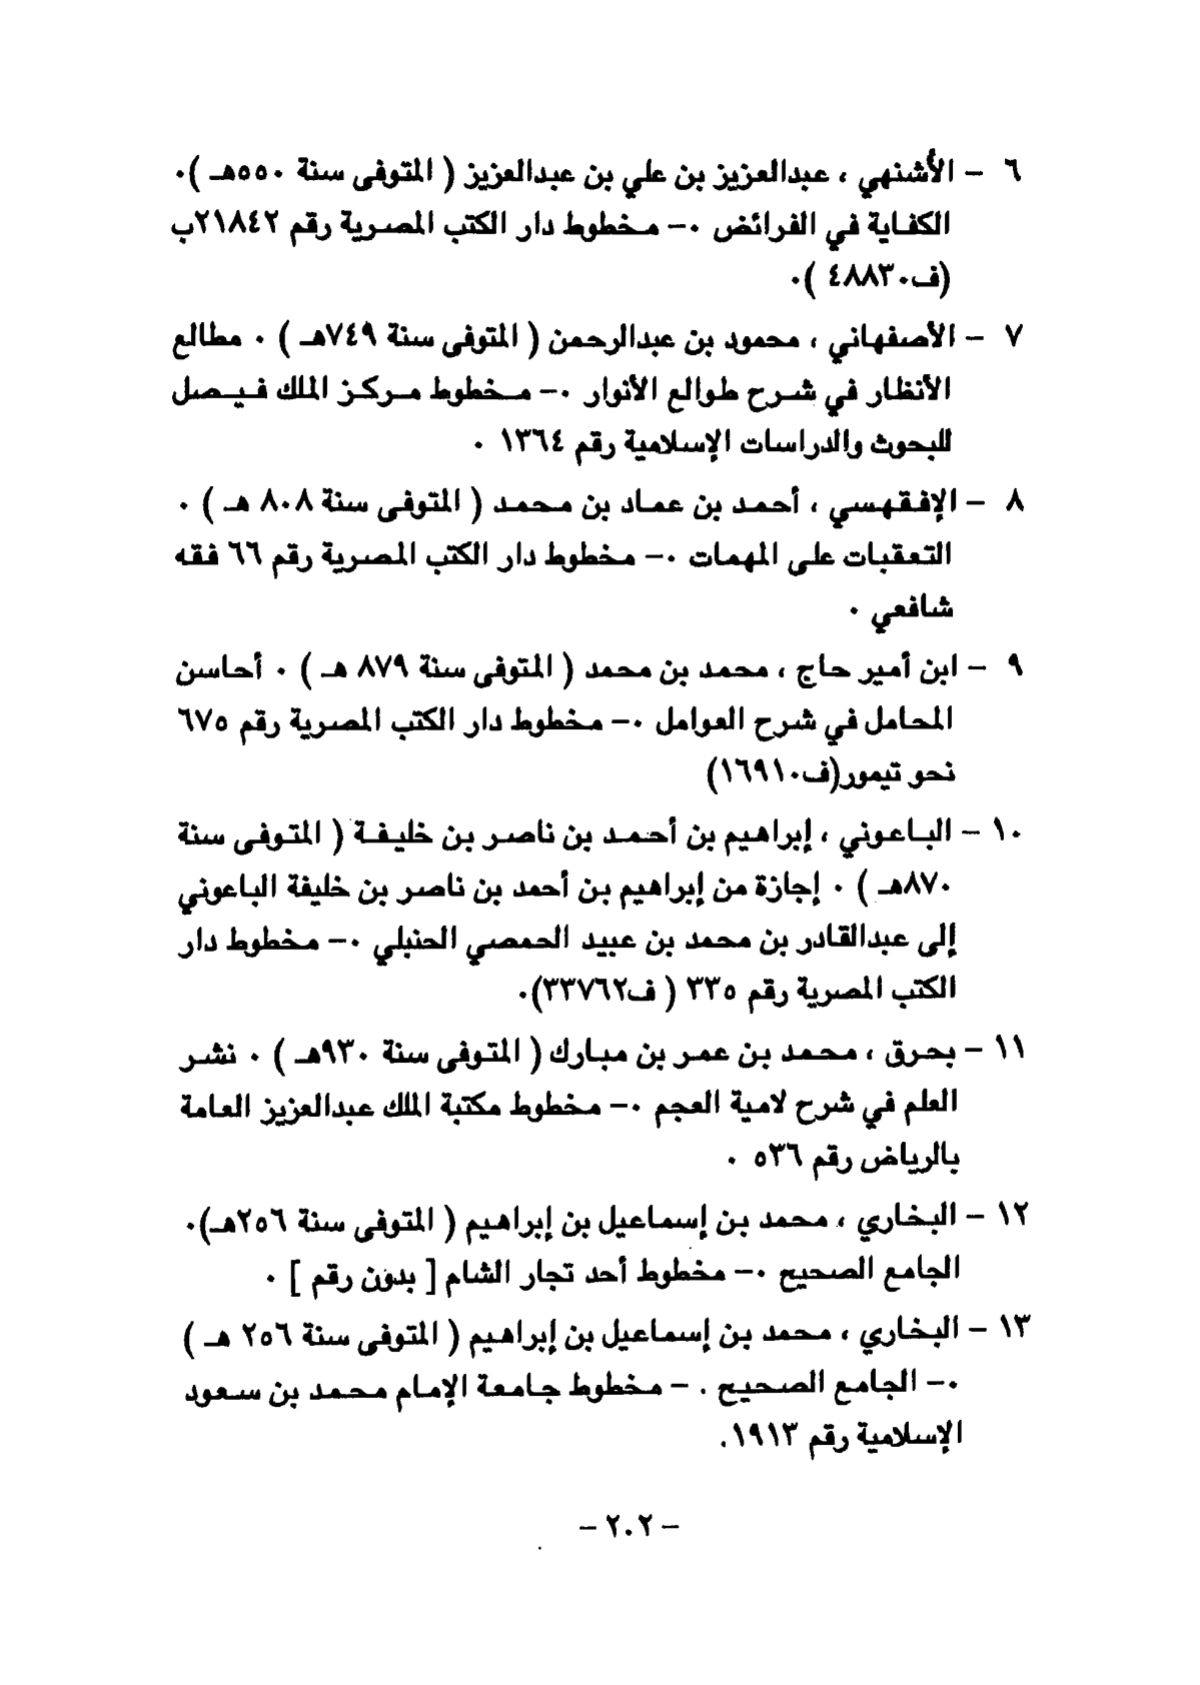 ٦ - الأشنهي ، عبدالعزيز بن علي بن عبدالعزيز ( المتوفى سنة ٥٥٠هـ ).
الكفاية في الفرائض .- مخطوط دار الكتب المصرية رقم ٢١٨٤٢ب
(ف٤٨٨٣٠ ).
٧ - الأصفهاني ، محمود بن عبدالرحمن ( المتوفى سنة ٧٤٩هـ ) . مطالع
الأنظار في شرح طوالع الأنوار .- مخطوط مركز الملك فيصل
للبحوث والدراسات الإسلامية رقم ١٣٦٤ .
٨ - الإفقهسي ، أحمد بن عماد بن محمد ( المتوفى سنة ٨٠٨ هـ ) .
التعقبات على المهمات .- مخطوط دار الكتب المصرية رقم ٦٦ فقه
شافعي .
٩ - ابن أمير حاج ، محمد بن محمد ( المتوفى سنة ٨٧٩ هـ ) . أحاسن
المحامل في شرح العوامل .- مخطوط دار الكتب المصرية رقم ٦٧٥
نحو تيمور(ف١٦٩١٠)
١٠ - الباعوني ، إبراهيم بن أحمد بن ناصر بن خليفة ( المتوفى سنة
٨٧٠هـ ) . إجازة من إبراهيم بن أحمد بن ناصر بن خليفة الباعوني
إلى عبدالقادر بن محمد بن عبيد الحمصي الحنبلي .- مخطوط دار
الكتب المصرية رقم ٣٣٥ ( ف٣٣٧٦٢).
١١ - بحرق ، محمد بن عمر بن مبارك ( المتوفى سنة ٩٣٠هـ ) . نشر
العلم في شرح لامية العجم .- مخطوط مكتبة الملك عبدالعزيز العامة
بالرياض رقم ٥٣٦ .
١٢ - البخاري ، محمد بن إسماعيل بن إبراهيم ( المتوفى سنة ٢٥٦هـ).
الجامع الصحيح .- مخطوط أحد تجار الشام [ بدون رقم ] .
١٣ - البخاري ، محمد بن إسماعيل بن إبراهيم ( المتوفى سنة ٢٥٦ هـ )
.- الجامع الصحيح . - مخطوط جامعة الإمام محمد بن سعود
الإسلامية رقم ١٩١٣.
- ٢٠٢ -